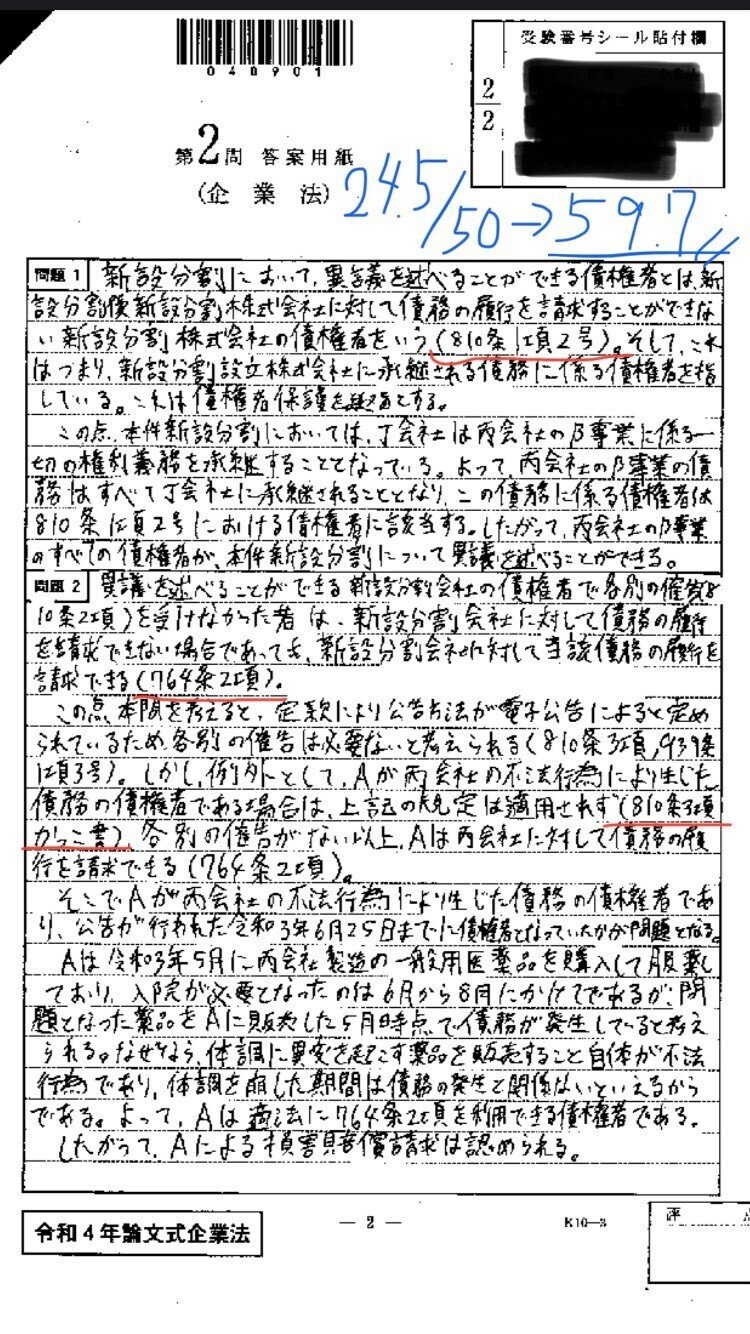 040901
受験番号シール貼付欄
2
2
第2問 答案用紙
(企業法)
24.5/50→59.7
問題1 新設分割において、異議を述べることができる債権者とは、新
設分割後新設分割株式会社に対して債務の履行を請求することができな
い新設分割株式会社の債権者をいう(810条1項2号)。そして、これ
はつまり、新設分割設立株式会社に承継される債務に係る債権者を指
している。これは債権者保護を趣旨とする。
この点、本件新設分割においては、丁会社は丙会社のβ事業に係る一
切の権利義務を承継することとなっている。よって、丙会社のβ事業の債
務はすべて丁会社に承継されることとなり、この債務に係る債権者は
810条1項2号における債権者に該当する。したがって、丙会社のβ事業
のすべての債権者が、本件新設分割について異議を述べることができる。
問題2 異議を述べることができる新設分割会社の債権者で各別の催告(8
10条2項)を受けなかった者は、新設分割会社に対して債務の履行
を請求できない場合であっても、新設分割会社に対して当該債務の履行を
請求できる(764条2項)。
この点、本問を考えると、定款により公告方法が電子公告によると定め
られているため各別の催告は必要ないと考えられる(810条3項,939条
1項3号)。しかし、例外として、Aが丙会社の不法行為により生じた
債務の債権者である場合は、上記の規定は適用されず(810条3項
かっこ書)、各別の催告がない以上、Aは丙会社に対して債務の履
行を請求できる(764条2項)。
そこでAが丙会社の不法行為により生じた債務の債権者であ
り、公告が行われた令和3年6月25日までに債権者となっていたかが問題となる。
Aは令和3年5月に丙会社製造の一般用医薬品を購入して服薬し
ており、入院が必要となったのは6月から8月にかけてであるが、問
題となった薬品をAに販売した5月時点で債務が発生していると考え
られる。なぜなら、体調に異変を起こす薬品を販売すること自体が不法
行為であり、体調を崩した期間は債務の発生と関係ないといえるから
である。よって、Aは適法に764条2項を利用できる債権者である。
したがって、Aによる損害賠償請求は認められる。
令和4年論文式企業法
— 2 —
K10—3
評